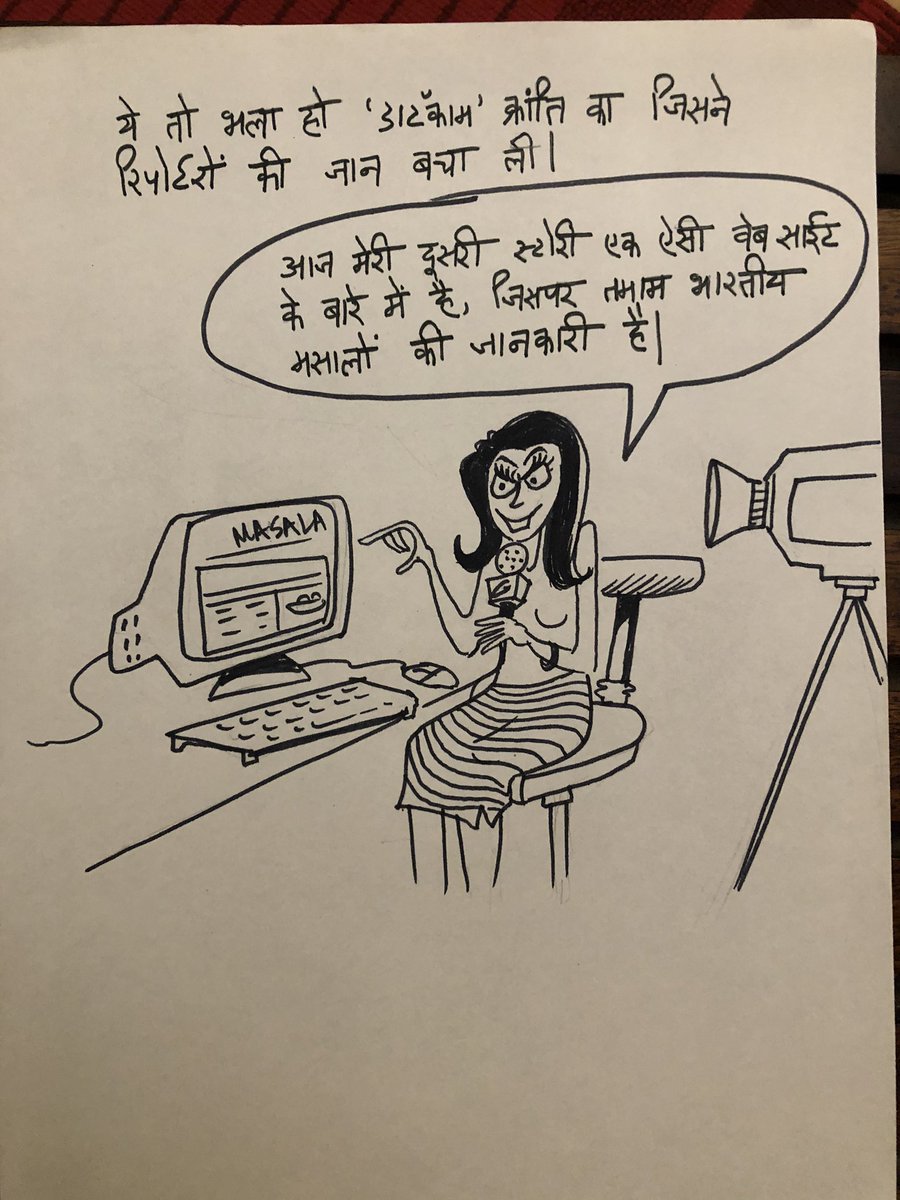 ये तो भला हो 'डाटॅकाम' क्रांति का जिसने
रिपोर्टरों की जान बचा ली।
आज मेरी दूसरी स्टोरी एक ऐसी वेब साईट
के बारे में है, जिसपर तमाम भारतीय
मसालों की जानकारी है।
MASALA